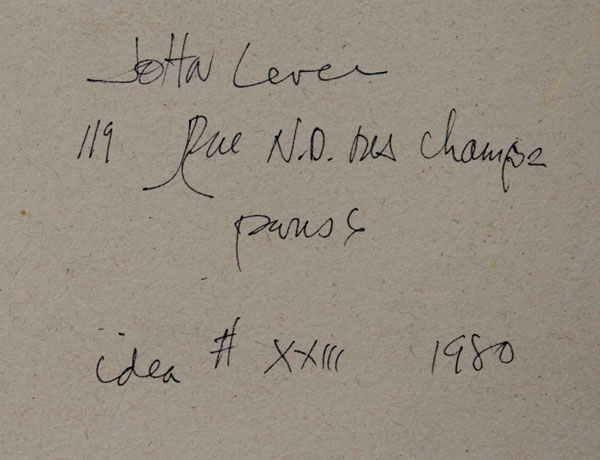 John Levee
119 Rue N.D. des Champs
Paris 6
idea # XXIII 1980